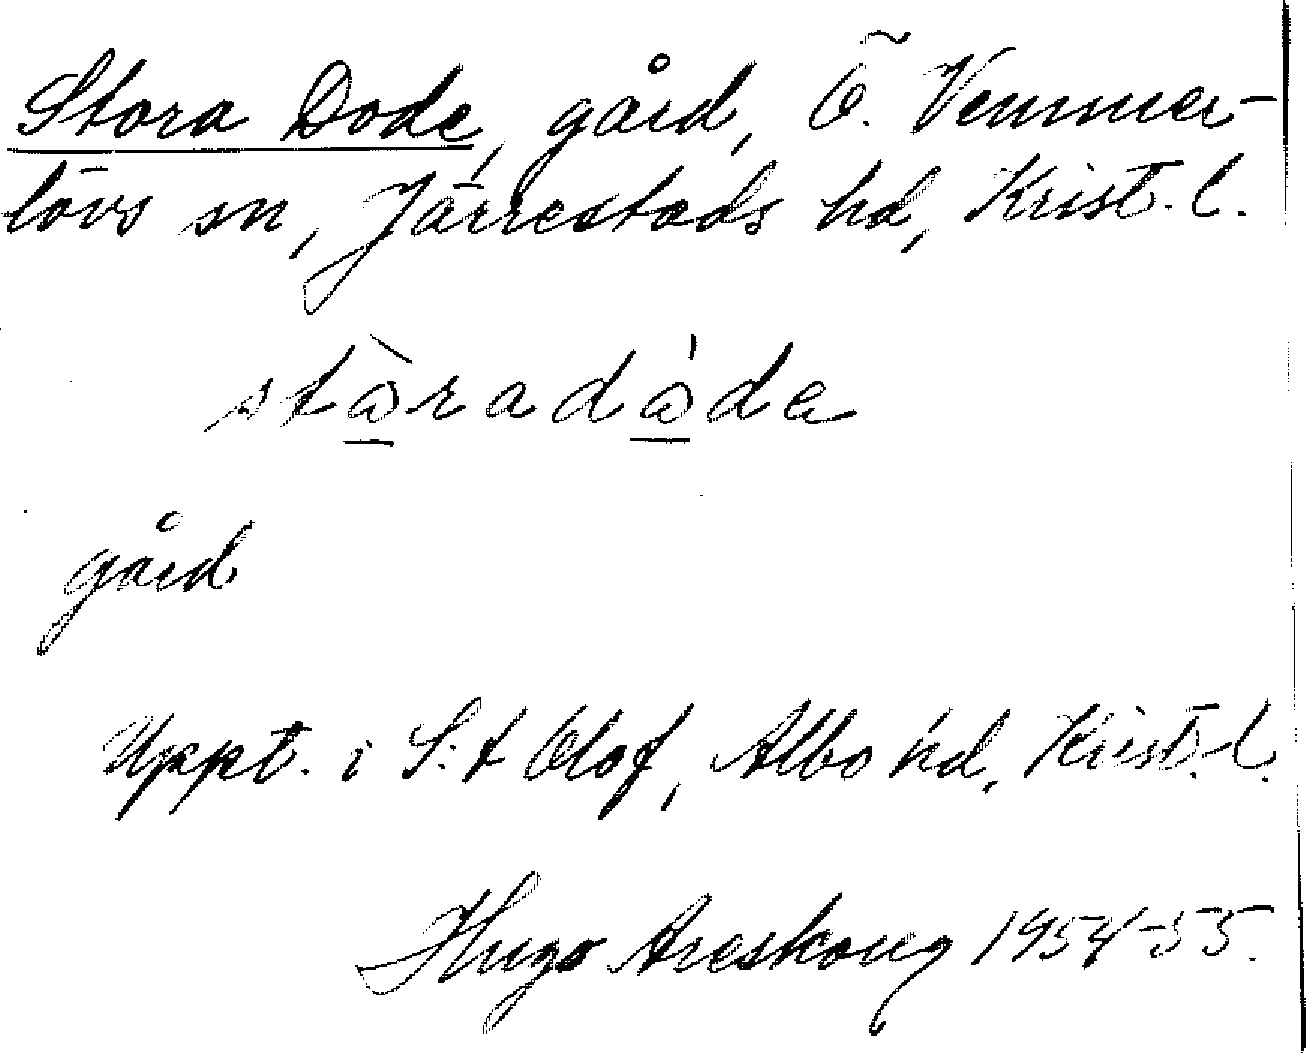 Stora Dode, gård, Ö. Vemmer-
lövs sn, Järrestads hd, Krist. l.
stàradáde
gård
Uppt. i S:t Olof, Albo hd, Krist. l.
Hugo Areskoug 1954-55.